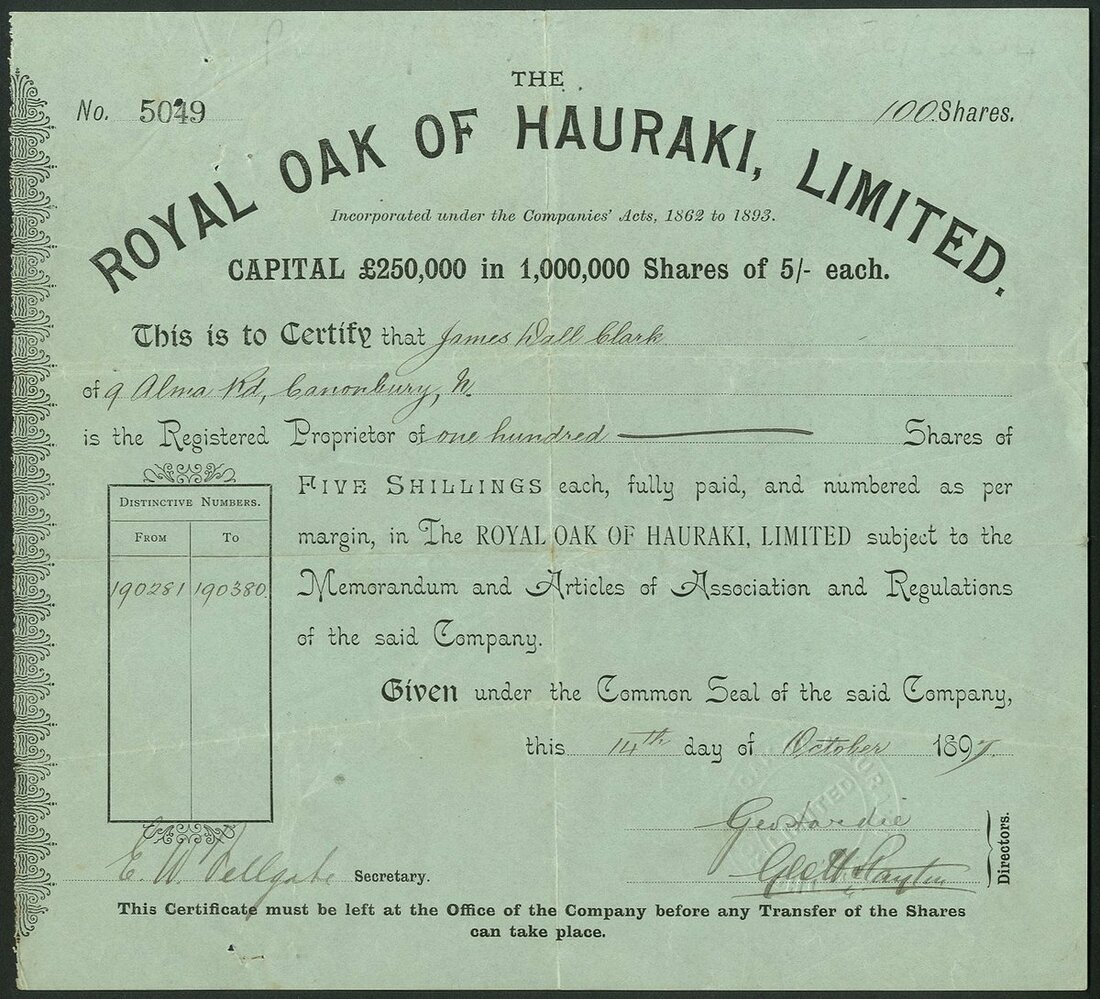 THE
No. 5049
100 Shares.
ROYAL OAK OF HAURAKI, LIMITED.
Incorporated under the Companies' Acts, 1862 to 1893.
CAPITAL £250,000 in 1,000,000 Shares of 5/- each.
This is to Certify that James Wall Clark
of 9 Alma Rd, Canonbury, N.
is the Registered Proprietor of one hundred Shares of
FIVE SHILLINGS each, fully paid, and numbered as per
margin, in The ROYAL OAK OF HAURAKI, LIMITED subject to the
Memorandum and Articles of Association and Regulations
of the said Company.
DISTINCTIVE NUMBERS.
FROM TO
190281 190380
Given under the Common Seal of the said Company,
this 14th day of October 1897.
Geo Hardie
Directors.
E. W. Fellgate Secretary.
This Certificate must be left at the Office of the Company before any Transfer of the Shares
can take place.